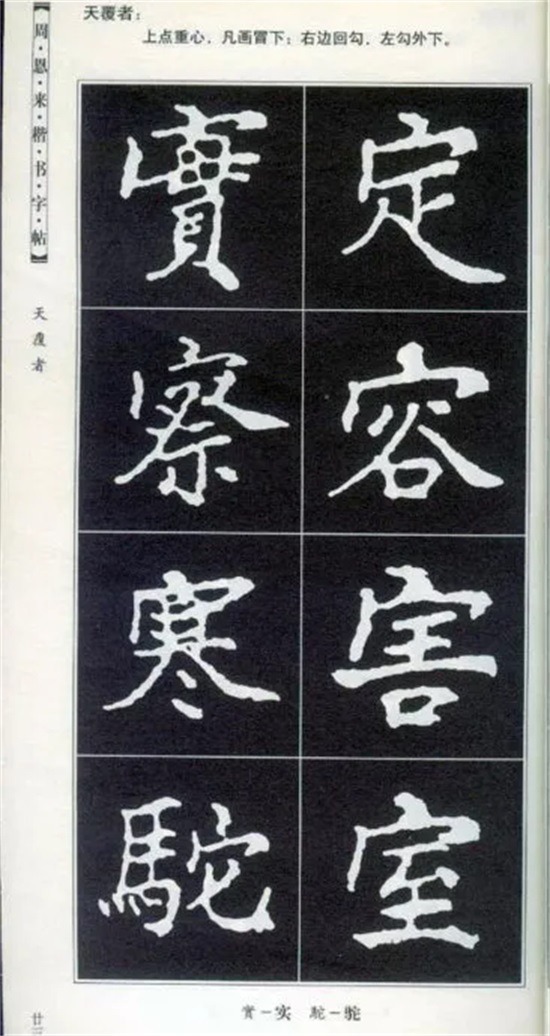 天覆者：
上点重心，凡画冒下；右边回勾，左勾外下。
【周·恩·来·楷·书·字·帖】
天覆者
定容害室
實察寒駝
實—实 駝—驼